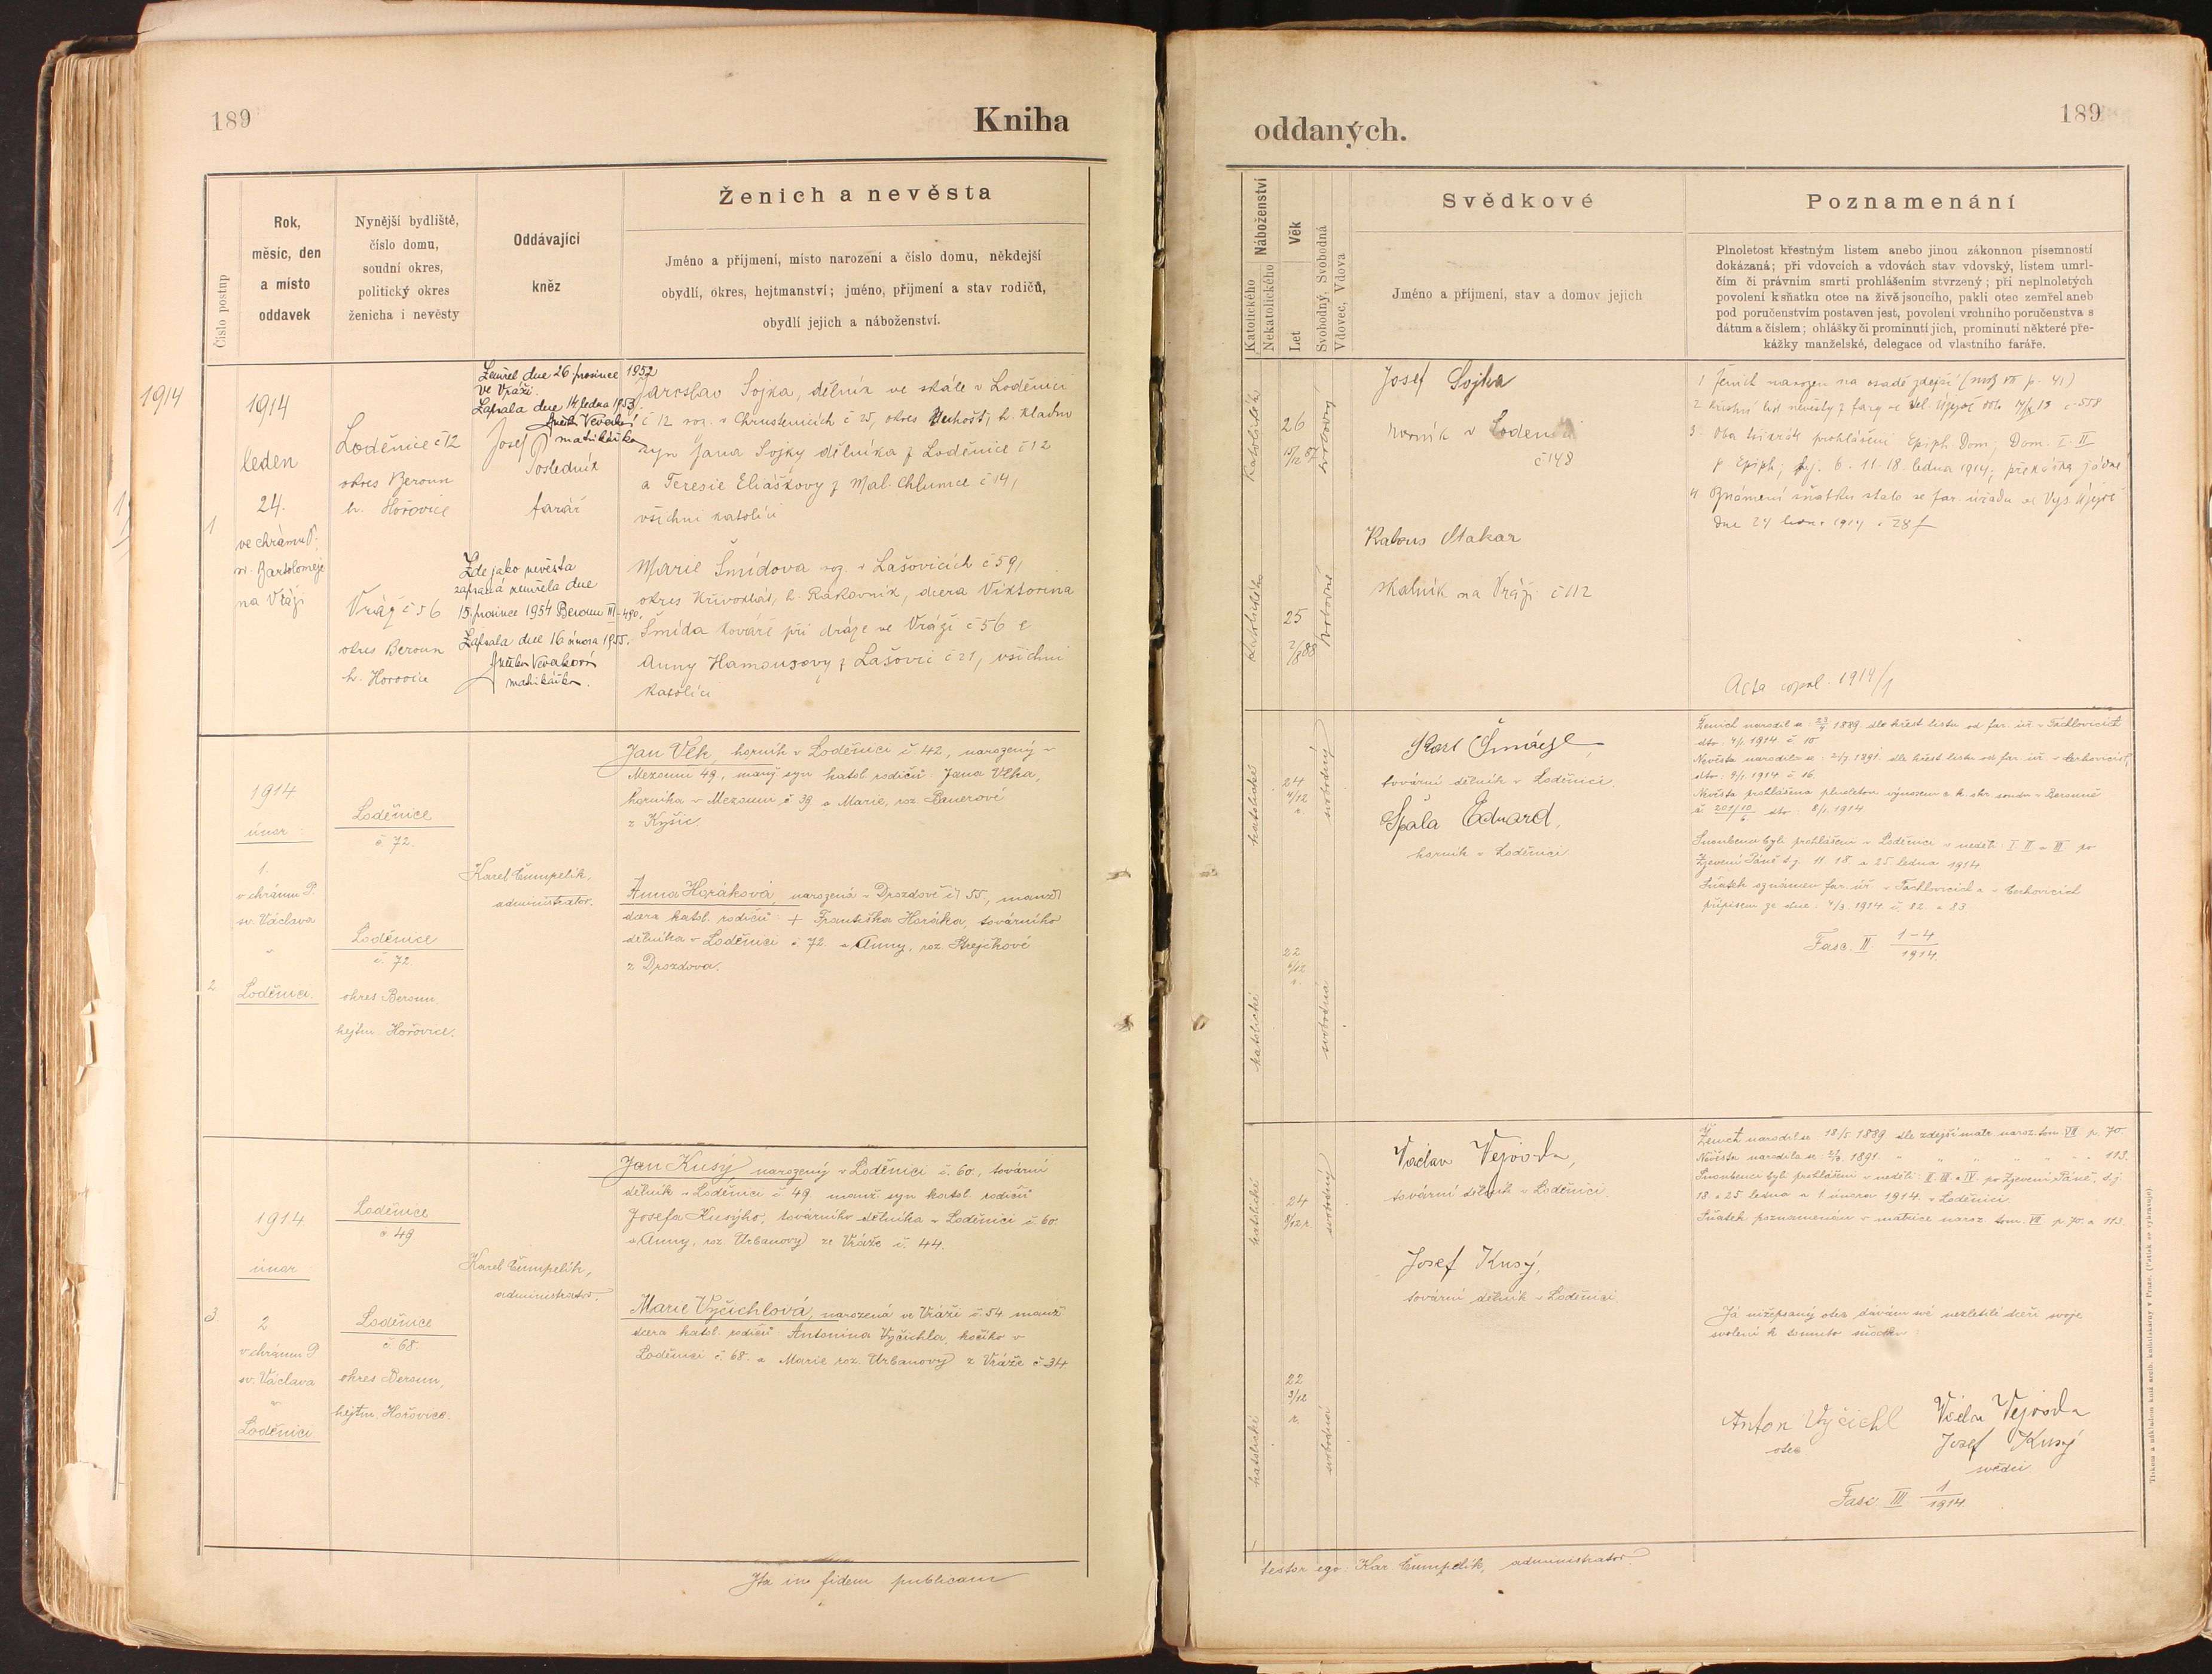 189
Kniha
Číslo postup
Rok,
měsíc, den
a místo
oddavek
Nynější bydliště,
číslo domu,
soudní okres,
politický okres
ženicha i nevěsty
Oddávající
kněz
Ženich a nevěsta
Jméno a příjmení, místo narození a číslo domu, někdejší
obydlí, okres, hejtmanství; jméno, příjmení a stav rodičů,
obydlí jejich a náboženství.
1914
1
1914
leden
24.
ve chrámu P.
sv. Bartoloměje
na Vráži
Loděnice č 12
okres Beroun
h. Hořovice
Vráž č 56
okres Beroun
h. Hořovice
Zemřel dne 26 prosince 1952
ve Vráži.
Zapsala dne 14 ledna 1953.
matrikářka
Josef
Posledník
farář
Zde jako nevěsta
zapsaná zemřela dne
15. prosince 1954 Beroun III-490.
Zapsala dne 16 února 1955.
matrikářka.
Jaroslav Sojka, dělník ve skále v Loděnici
č 12 roz. v Chrustenicích č 25, okres Unhošť, h. Kladno
syn Jana Sojky dělníka z Loděnice č 12
a Teresie Eliáškovy z Mal. Chlumce č 14,
všichni katolíci
Marie Šmídova roz. v Lašovicích č 59,
okres Křivoklát, h. Rakovník, dcera Viktorina
Šmída kováře při dráze ve Vráži č 56 a
Anny Hamousovy z Lašovic č 21, všichni
katolíci
2
1914
únor
1.
v chrámu P.
sv. Václava
v
Loděnici.
Loděnice
č. 72.
Loděnice
č. 72
okres Beroun,
hejtm. Hořovice.
Karel Čumpelík,
administrator.
Jan Vlk, horník v Loděnici č. 42, narozený v
Mezouni 49, manž. syn katol. rodičů: Jana Vlka,
horníka v Mezouni č. 39 a Marie, roz. Bauerové
z Kyšic
Anna Horáková, narozená v Drozdově č. 55, manž.
dcera katol. rodičů: + Františka Horáka, továrního
dělníka v Loděnici č. 72. a Anny, roz. Strejčkové
z Drozdova.
3
1914
únor
2.
v chrámu P.
sv. Václava
v
Loděnici
Loděnice
č. 49
Loděnice
č. 68.
okres Beroun,
hejtm. Hořovice.
Karel Čumpelík,
administrator.
Jan Kusý narozený v Loděnici č. 60., tovární
dělník v Loděnici č 49 manž. syn katol. rodičů
Josefa Kusýho, továrního dělníka v Loděnici č. 60.
a Anny, roz. Urbanovy ze Vráže č. 44.
Marie Vyčichlová, narozená ve Vráži č. 54. manž.
dcera katol. rodičů Antonína Vyčichla, kočího v
Loděnici č. 68. a Marie roz. Urbanovy z Vráže č 34
Ita in fidem publicam
189
oddaných.
Náboženství
Katolického
Nekatolického
Věk
Let
Svobodný, Svobodná
Vdovec, Vdova
Svědkové
Jméno a příjmení, stav a domov jejich
Poznamenání
Plnoletost křestným listem anebo jinou zákonnou písemností
dokázaná; při vdovcích a vdovách stav vdovský, listem umrl-
čím či právním smrti prohlášením stvrzený; při neplnoletých
povolení k sňatku otce na živě jsoucího, pakli otec zemřel aneb
pod poručenstvím postaven jest, povolení vrchního poručenstva s
dátum a číslem; ohlášky či prominutí jich, prominutí některé pře-
kážky manželské, delegace od vlastního faráře.
26
15/12 87
25
2/8 88
svobodný
svobodná
Josef Sojka
horník v Loděnici
č 148
Kabous Otakar
skalník na Vráži č 112
1 Ženich narozen na osadě zdejší (
2 Křestní list nevěsty z fary ve Vel. Újezdě
3. Oba třikrát prohlášeni Epiph. Dom.; Dom. I. II
p. Epiph; tj. 6. 11. 18. ledna 1914; překážka žádné
4 Oznámení sňatku stalo se far. úřadu ve
dne 24 ledna 1914 č 28 f
Acta copul. 1914/1
katolické
24
4/12
svobodný
katolické
22
6/12
svobodná
Karel
tovární dělník v Loděnici.
Špála Eduard,
horník v Loděnici
Ženich narodil se 23/9 1889. dle křest listu od far. úř. v Tachlovicích
dto: 4/1 1914. č. 10
Nevěsta narodila se 2/7. 1891. dle křest listu od far. úř. v Cerhovicích,
dto. 9/1 1914 č. 16.
Nevěsta prohlášena plnoletou výnosem c. k. okr. soudu v Berouně
č. 201/10 6 dto. 8/1. 1914
Snoubenci byli prohlášeni v Loděnici v neděli I II a III po
Zjevení Páně t.j. 11. 18. a 25. ledna 1914
Sňatek oznámen far. úř. v Tachlovicích a v Cerhovicích
přípisem ze dne: 4/3. 1914. č. 82. a 83
Fasc. II. 1-4 1914
katolické
24
svobodný
katolické
22
3/12
r.
svobodná
Václav Vejvoda,
tovární dělník v Loděnici.
Josef Kusý,
tovární dělník v Loděnici.
Ženich narodil se 18/5. 1889 dle zdejší matr. naroz. tom. VII p. 70.
Nevěsta narodila se 1891 " " " " " " 113.
Snoubenci byli prohlášeni v neděli II. III. a IV. po Zjevení Páně, t.j.
18. a 25 ledna a 1 února 1914. v Loděnici.
Sňatek poznamenán v matrice naroz. tom. VII p. 70. a 113.
Já nížepsaný otec dávám své nezletilé dceři svoje
svolení k tomuto sňatku:
Anton Vyčichl
otec
Václav Vejvoda
Josef Kusý
svědci
Fasc III. 1 1914
testor ego: Kar. Čumpelík, administrator.